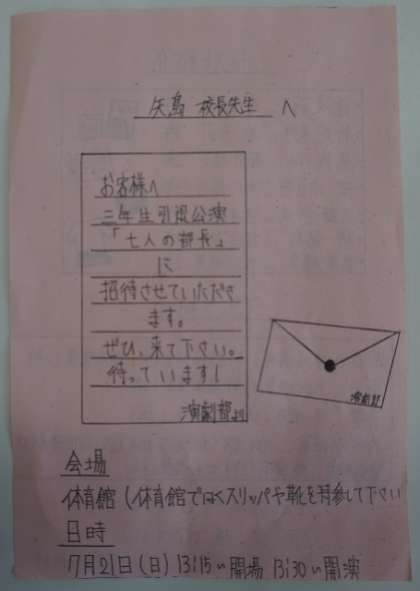 矢島 校長先生 へ
お客様へ
三年生引退公演
「七人の部長」
に
招待させていただき
ます。
ぜひ、来て下さい。
待っています!
演劇部より
演劇部
会場
体育館(体育館ではくスリッパや靴を持参して下さい
日時
7月21日(日) 13:15〜開場 13:30〜開演